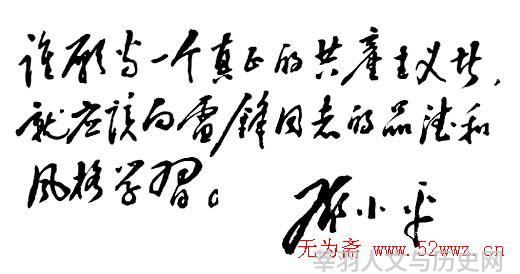 谁愿当一个真正的共产主义者，
就应该向雷锋同志的品德和
风格学习。
邓小平
无为斋 www.52wwz.cn
幸羽人文与历史网